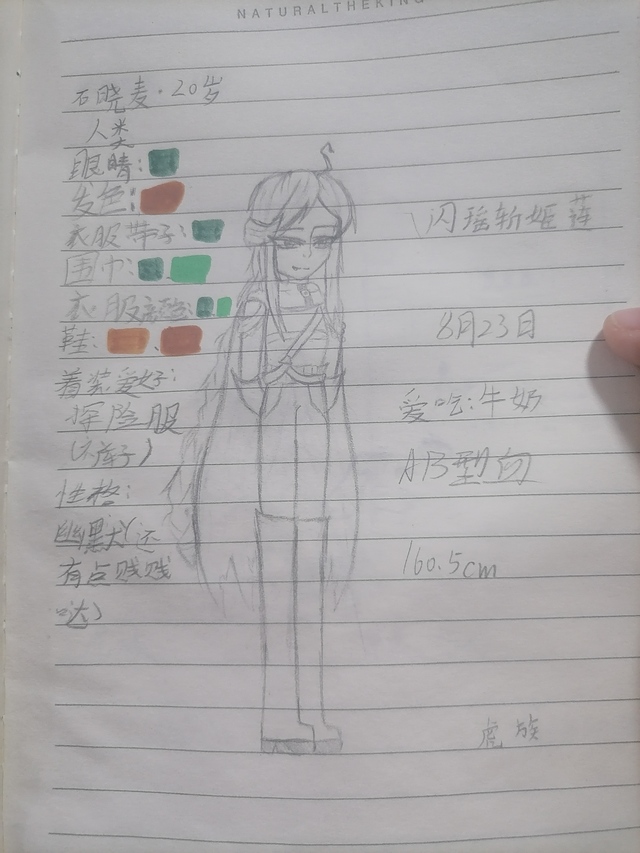 NATURALTHEKING
石晓麦·20岁
人类
眼睛:
发色:
衣服带子:
围巾:
衣服
鞋:
着装爱好:
探险服
(不裤子)
性格:
幽默(还
有点贱贱
哒)
闪瑶斩姬莲
8月23日
爱吃:牛奶
AB型血
160.5cm
虎族